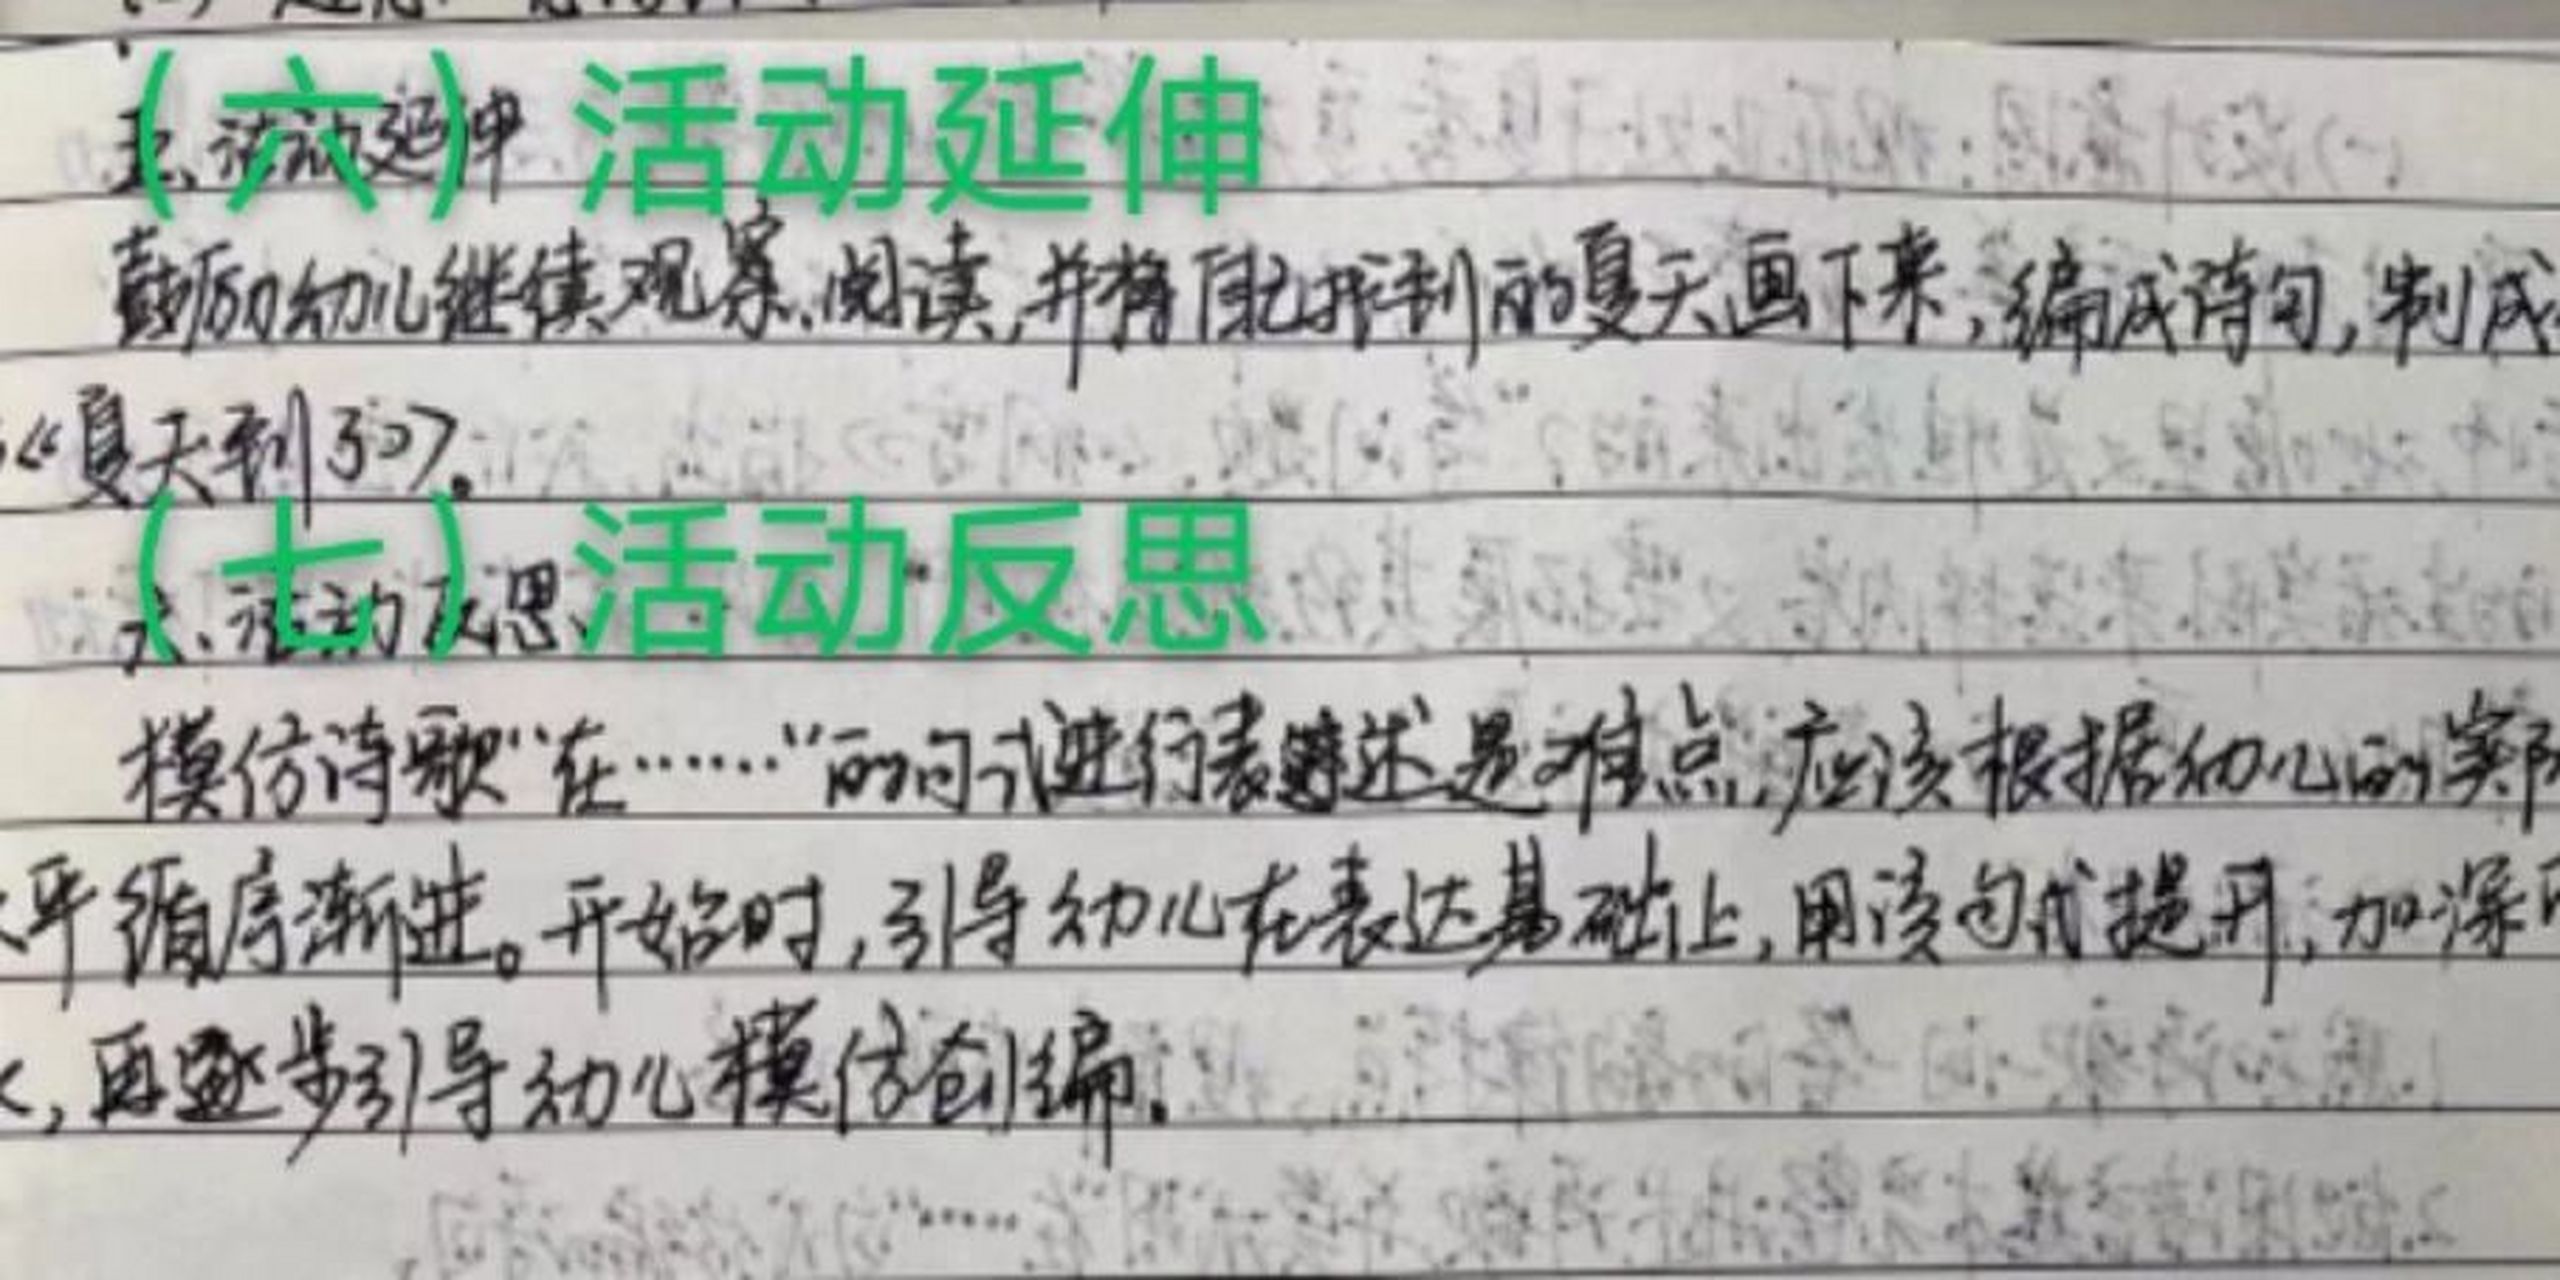 （六）活动延伸
五、活动延伸
鼓励幼儿继续观察、阅读,并将自己找到的夏天画下来,编成诗句,制成
《夏天到了》。
（七）活动反思
六、活动反思
模仿诗歌“在……”的句式进行表述是难点,应该根据幼儿的实际
水平循序渐进。开始时,引导幼儿在表达基础上,用该句式提升,加深印
,再逐步引导幼儿模仿创编。